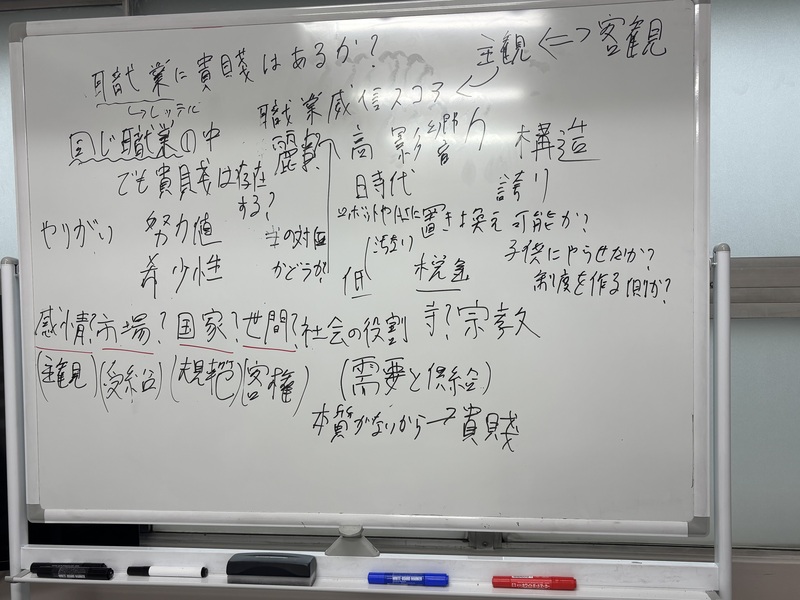 職業に貴賤はあるか?
主観⇔客観
↳レッテル
職業威信スコア
同じ職業の中
でも貴賎は存在
する?
高 影響力
構造
時代
誇り
ロボットやAIに置き換え可能か?
やりがい 努力値
希少性
かどうか?
汚い
低
税金
子供にやらせたいか?
制度を作る側か?
感情?市場?国家?世間?社会の役割 寺?宗教
(主観)(受給)(規範)(客権)(需要と供給)
本質がないから→貴賤